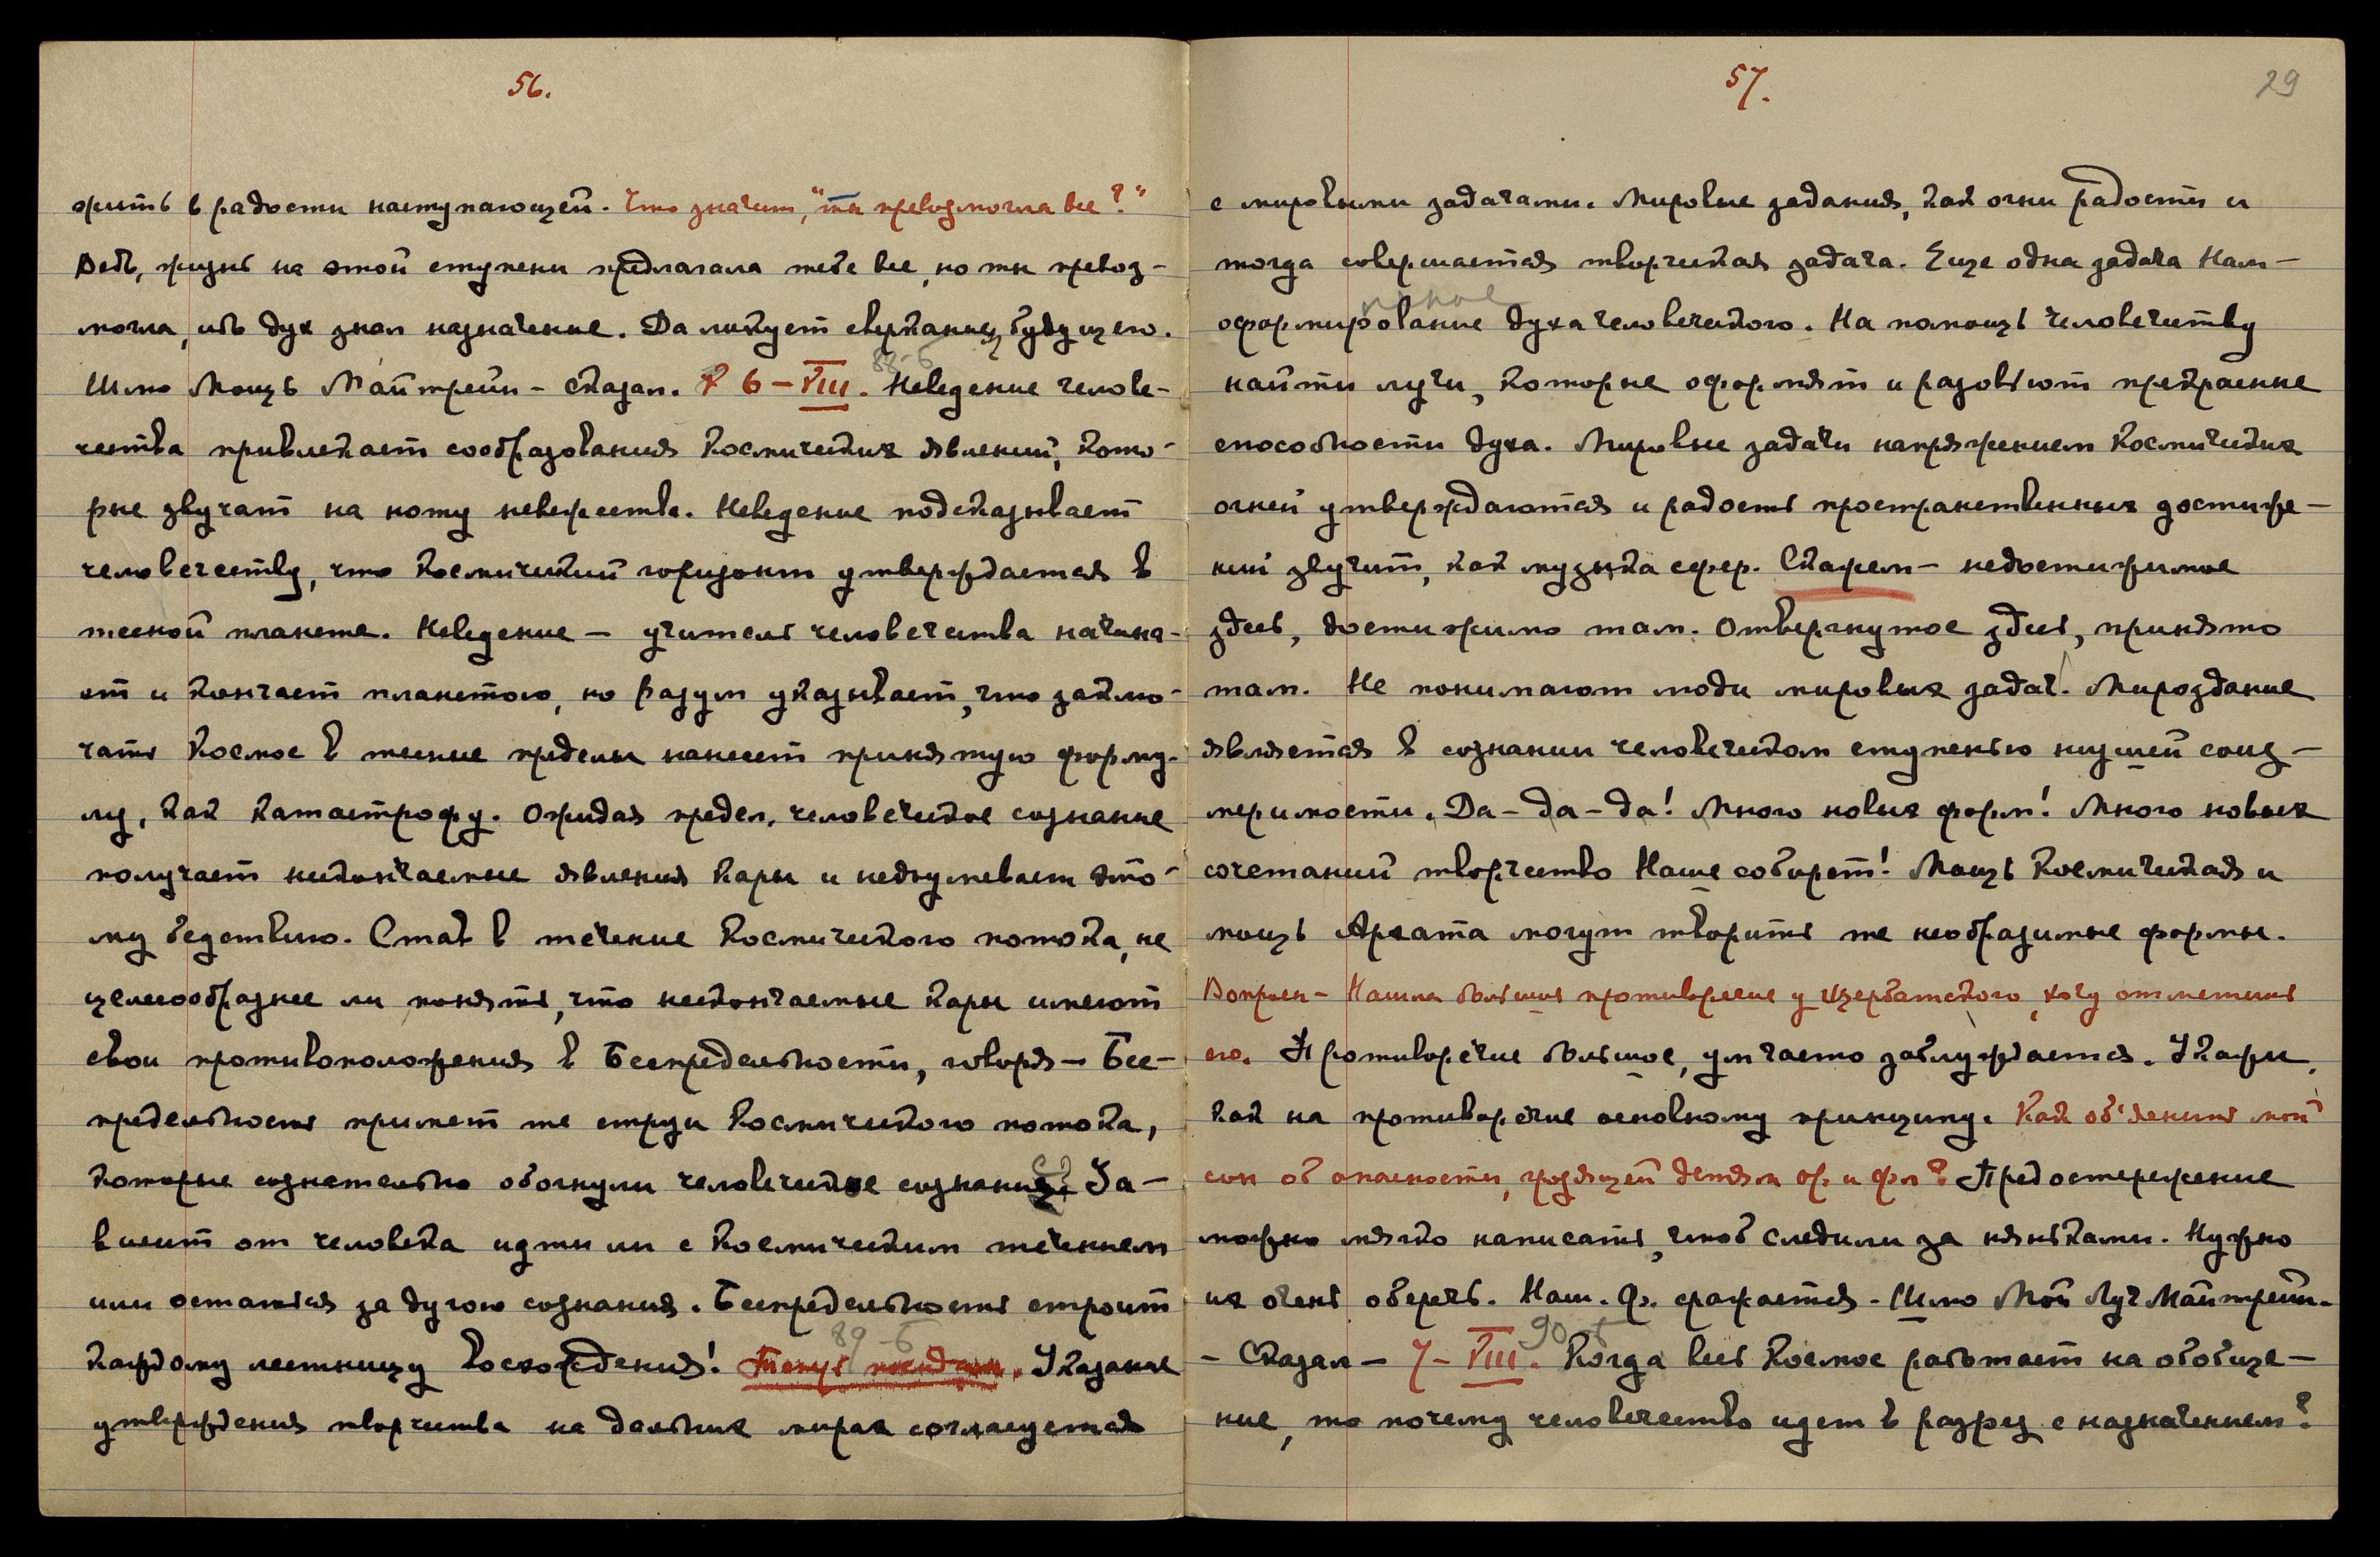 56.
жить в радости наступающей. Что значит, "ты превозмогла все?"
Ведь, жизнь на этой ступени предлагала тебе все, но ты превоз-
могла, ибо дух знал назначение. Да ликует сверкание будущего.
Шлю Мощь Майтрейи - сказал. 6 - VIII. 88-б Неведение челове-
чества привлекает сообразования Космических явлений, кото-
рые звучат на ноту невежества. Неведение подсказывает
человечеству, что Космический горизонт утверждается в
тесной планете. Неведение - учитель человечества начина-
ет и кончает планетою, но Разум указывает, что заклю-
чать Космос в тесные пределы нанесет принятую форму-
лу, как катастрофу. Ожидая предел, человеческое сознание
получает нескончаемые явления кары и недоумевает это-
му бедствию. Став в течение Космического потока, не
целесообразнее ли понять, что нескончаемые кары имеют
свои противоположения в Беспредельности, говоря - Бес-
предельность примет те струи Космического потока,
которые сознательно обогнули человеческое сознание? За-
висит от человека идти ли с Космическим течением
или остаться за дугою сознания. Беспредельность строит
каждому лестницу восхождения! 89-б Теперь Указание
утверждения творчества на дальних мирах согласуется
57.
29
с мировыми задачами. Мировые задания, как огни радости и
тогда совершается творческая задача. Еще одна задача Нам -
оформирование духа человеческого. На помощь человечеству
найти лучи, которые оформят и разовьют прекрасные
способности духа. Мировые задачи напряжением Космических
огней утверждаются и радость пространственных достиже-
ний звучит, как музыка сфер. Скажем - недостижимое
здесь, достижимо там. Отвергнутое здесь, принято
там. Не понимают люди мировых задач. Мироздание
является в сознании человеческом ступенью низшей соиз-
меримости. Да - да - да! Много новых форм! Много новых
сочетаний творчество Наше соберет! Мощь Космическая и
мощь Архата могут творить те необразимые формы.
Вопросы - Нашла большие противоречие у Щербатского, хочу отметить
его. Противоречие большое, ум часто заблуждается. Укажи,
как на противоречие основному принципу. Как об'яснить мой
сон об опасности, грозящей детям Ор. и Фл? Предостережение
можно мягко написать, чтоб следили за няньками. Нужно
их очень оберечь. Наш. Ф. сражается - Шлю Мой Луч Майтрейи.
- Сказал - 7 - VIII. 90-б Когда весь Космос работает на обобще-
ние, то почему человечество идет в разрез с назначением?